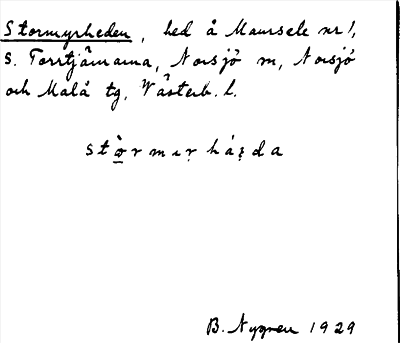 Stormyrheden, hed å Maursele nr 1,
S. Torrtjärnarna, Norsjö sn, Norsjö
och Malå tg. Västerb. l.
stò̱rmırháʒda
B. Nygren 1929